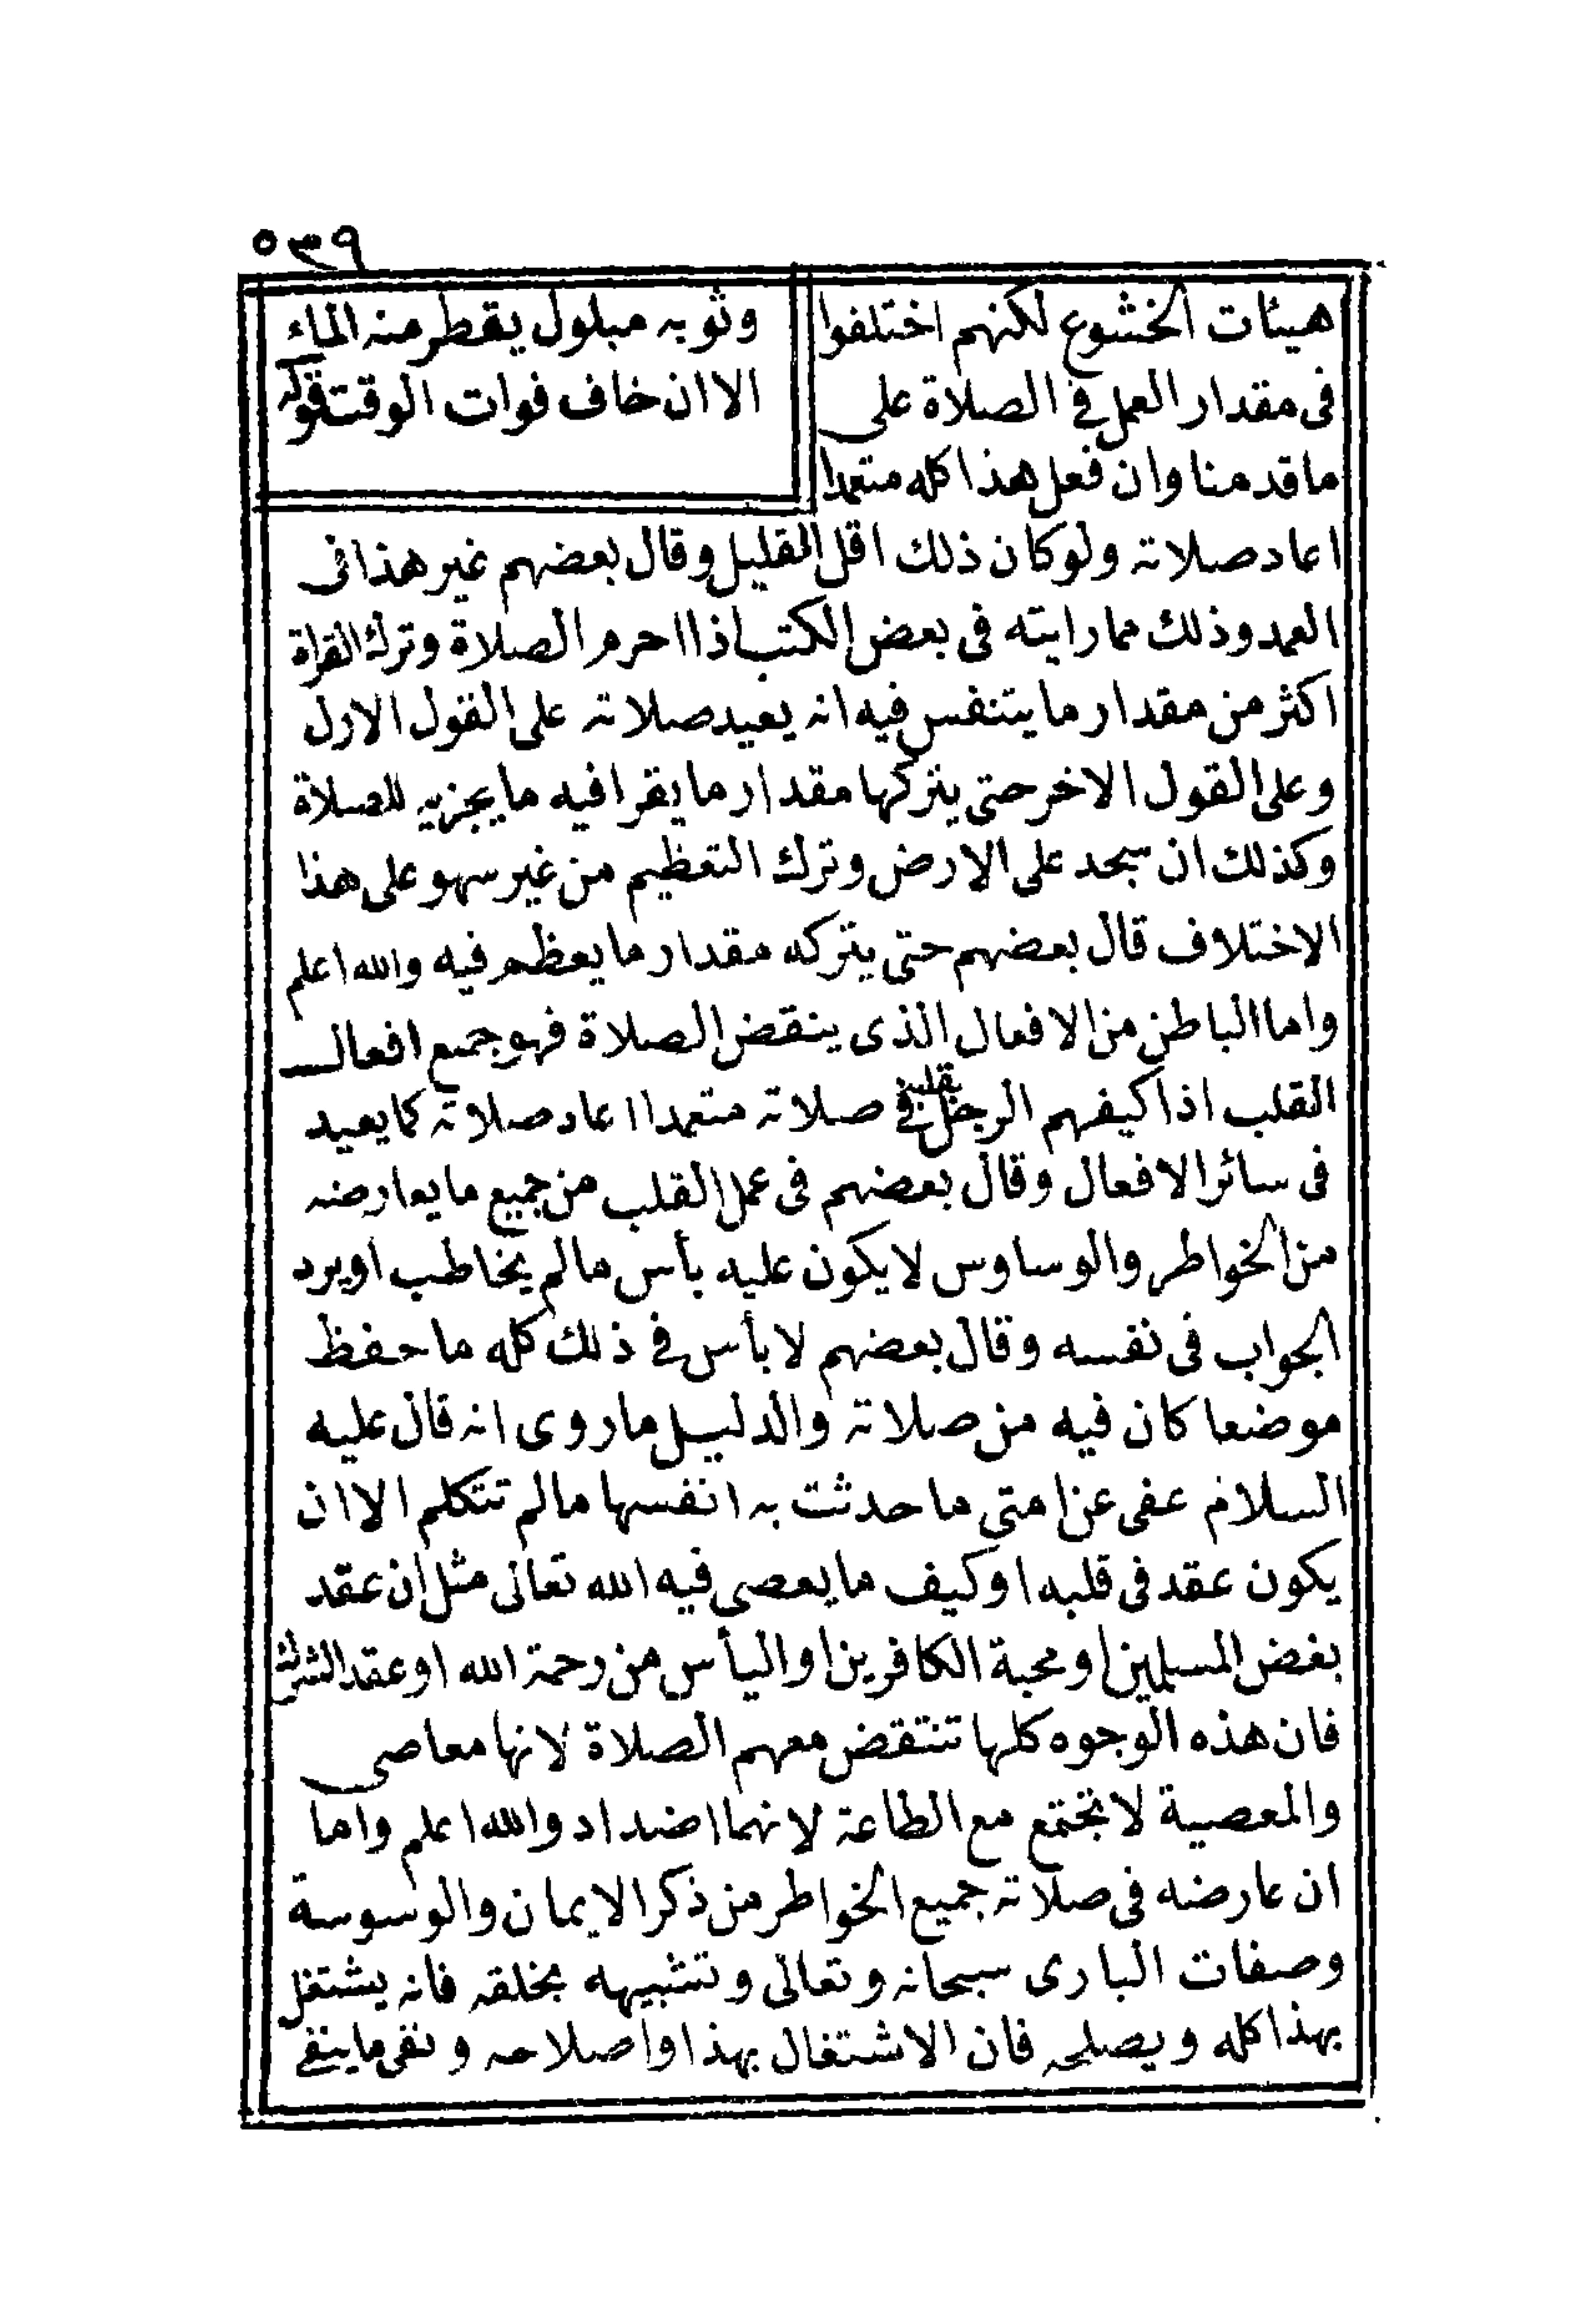 ٥٣٩
هيئات الخشوع لكنهم اختلفوا
فى مقدار العمل فى الصلاة على
ما قدمنا وان فعل هذا كله متعمدا
وثوبه مبلول يقطر منه الماء
الا ان خاف فوات الوقت قوله
اعاد صلاته ولو كان ذلك اقل القليل وقال بعضهم غير هذا فى
العمد وذلك مما رايته فى بعض الكتب اذا احرم الصلاة وترك القراة
اكثر من مقدار ما يتنفس فيه انه يعيد صلاته على القول الاول
وعلى القول الاخر حتى يتركها مقدار ما يقرا فيه ما يجزيه للصلاة
وكذلك ان سجد على الارض وترك التعظيم من غير سهو على هذا
الاختلاف قال بعضهم حتى يتركه مقدار ما يعظم فيه والله اعلم
واما الباطن من الافعال الذى ينقض الصلاة فهو جميع افعال
القلب اذا كيفهم الرجل بقلبه فى صلاته متعمدا اعاد صلاته كما يعيد
فى سائر الافعال وقال بعضهم فى عمل القلب من جميع ما يعارضه
من الخواطر والوساوس لا يكون عليه بأس ما لم يخاطب او يرد
الجواب فى نفسه وقال بعضهم لا بأس فى ذلك كله ما حفظ
موضعا كان فيه من صلاته والدليل ما روى انه قال عليه
السلام عفى عن امتى ما حدثت به انفسها ما لم تتكلم الا ان
يكون عقد فى قلبه او كيف ما يعصى فيه الله تعالى مثل ان عقد
بغض المسلمين او محبة الكافرين او اليأس من رحمة الله او عقد الشرك
فان هذه الوجوه كلها تنتقض معهم الصلاة لانها معاصى
والمعصية لا تجتمع مع الطاعة لانهما اضداد والله اعلم واما
ان عارضه فى صلاته جميع الخواطر من ذكر الايمان والوسوسة
وصفات البارى سبحانه وتعالى وتشبيهه بخلقه فانه يشتغل
بهذا كله ويصلحه فان الاشتغال بهذا واصلاحه ونفى ما ينفى